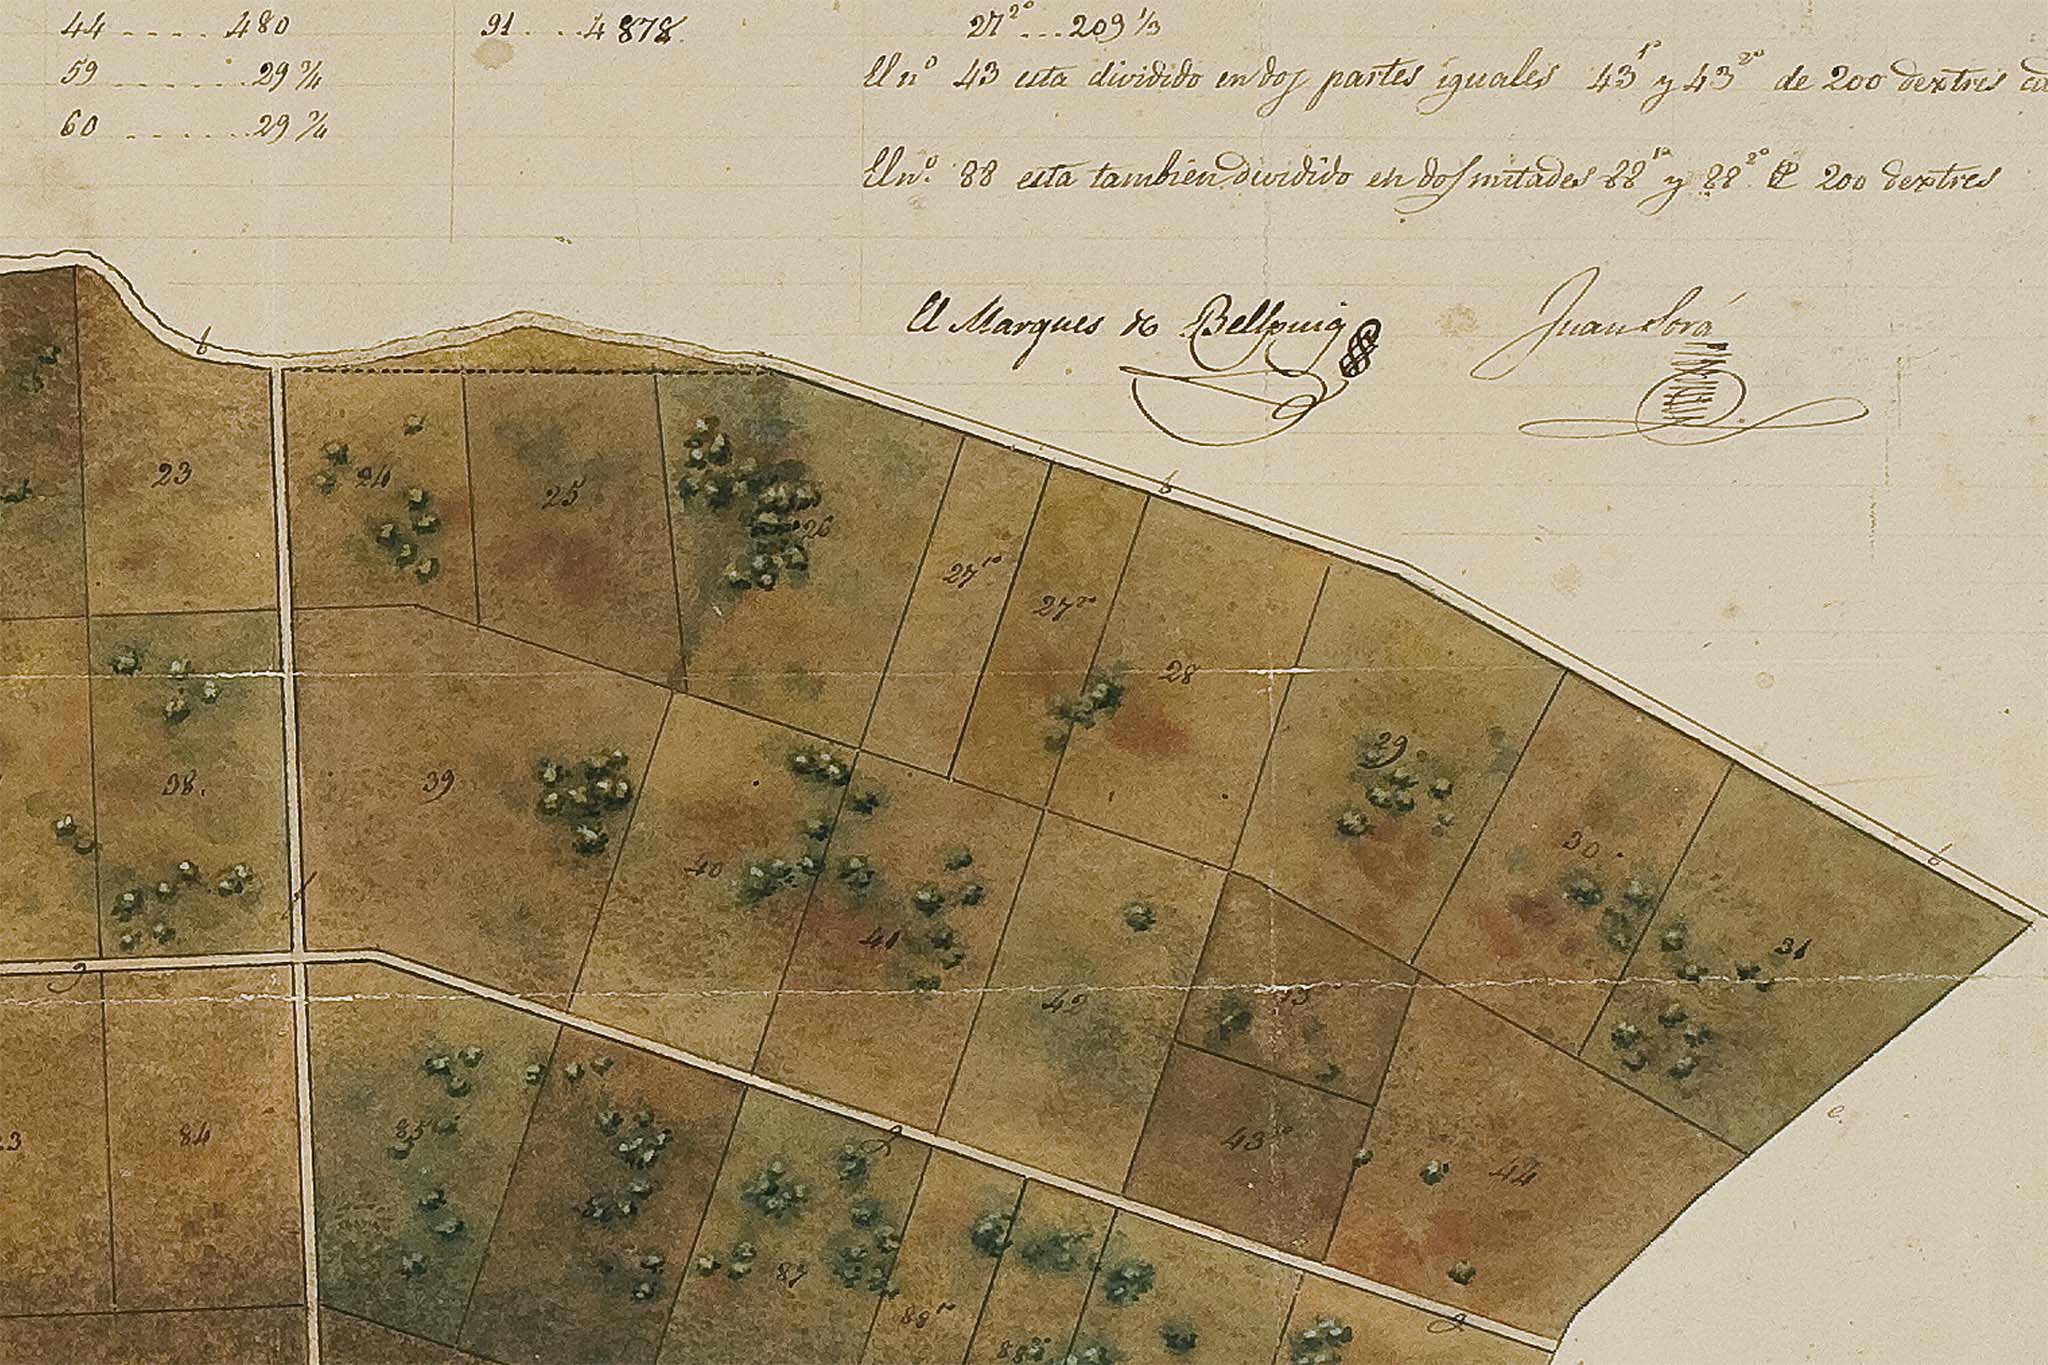 44 .... 480
59 ....... 29 7/4
60 ....... 29 7/4
91 .... 4878.
27 2º ... 209 1/3
El nº 43 esta dividido en dos partes iguales 43 1º y 43 2º de 200 dextres
El nº. 88 esta tambien dividido en dos mitades 88 1º y 88 2º 200 dextres
El Marques de Bellpuig
b
23
24
25
26
27 1º
27 2º
b
28
29
30.
31
b
38.
39
40
41
42
43 2º
44
e.
84
85
87
88 1º
88 2º